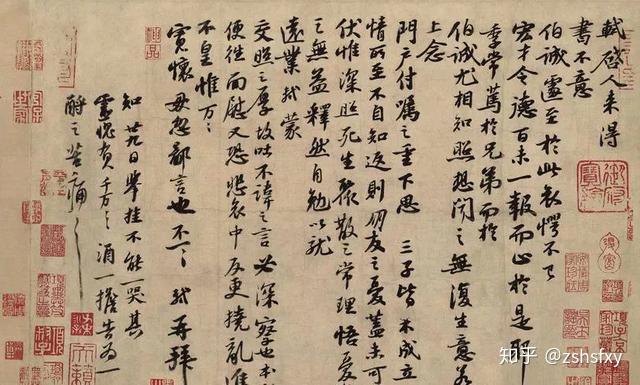 軾啓人来得
書不意
伯誠遽至於此哀愕不已
宏才令德百未一報而止於是耶
季常篤於兄弟而於
伯誠尤相知照想聞之無復生意若
上念
門户付囑之重下思三子皆不成立
情所至不自知返則朋友之憂蓋未可
伏惟深照死生聚散之常理悟憂
之無益釋然自勉以就
遠業軾蒙
交照之厚故吐不諱之言必深察也本
便往面慰又恐悲哀中反更撓亂進
不皇惟万〻
寬懷毋忽鄙言也不一〻軾再拜
知廿九日舉挂不能一哭其
靈愧負千万〻〻酒一擔告為一
酹之苦痛〻〻
知乎 @zshsfxy